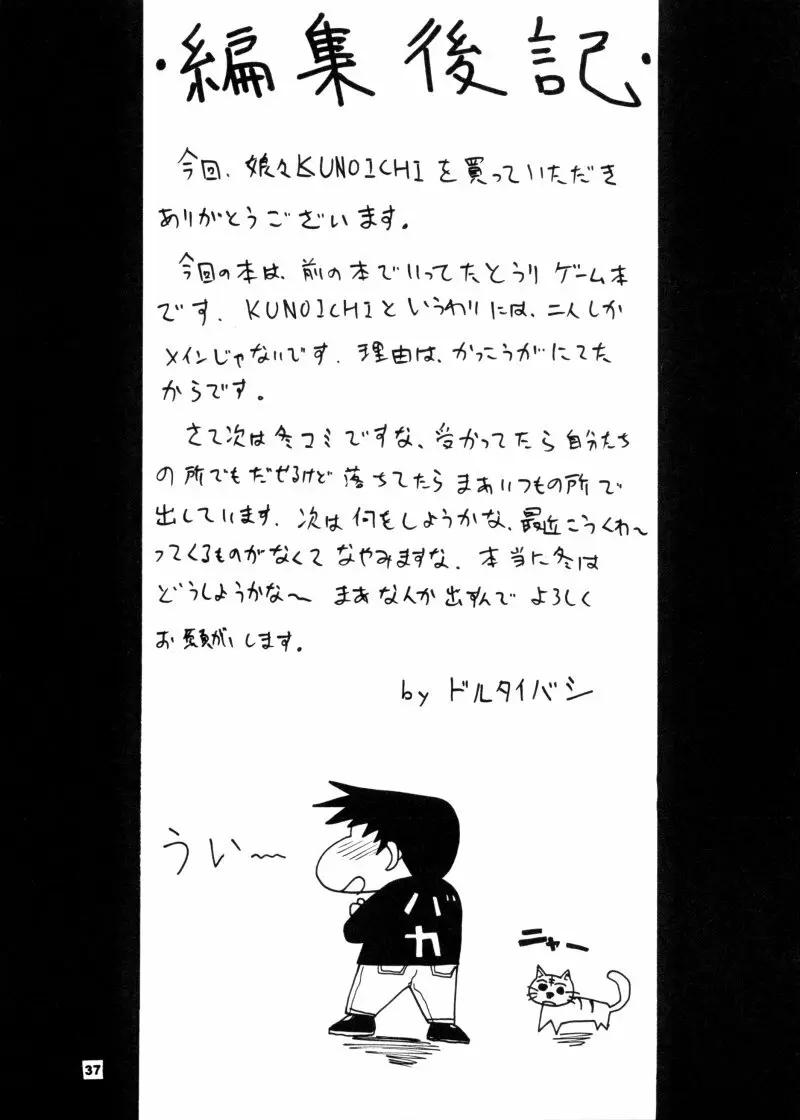 ・編集後記・
今回、娘々KUNOICHIを買っていただき
ありがとうございます。
今回の本は、前の本でいってたとうりゲーム本
です。KUNOICHIというわりには、二人しか
メインじゃないです。理由は、かっこうがにてた
からです。
さて次は冬コミですな、受かってたら自分たち
の所でもだせるけど落ちてたらまあいつもの所で
出しています。次は何をしようかな、最近こうくわ〜
ってくるものがなくてなやみますな。本当に冬は
どうしようかな〜まあなんか出すんでよろしく
お願がいします。
by ドルタイバシ
うい〜
バカ
ニャー
37